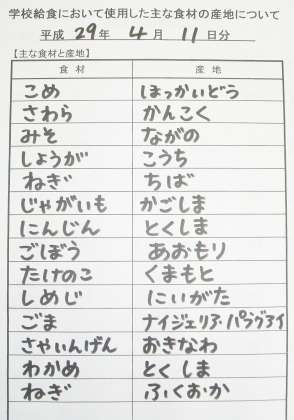 学校給食において使用した主な食材の産地について
平成 29年 4月 11日分
【主な食材と産地】
食材 産地
こめ ほっかいどう
さわら かんこく
みそ ながの
しょうが こうち
ねぎ ちば
じゃがいも かごしま
にんじん とくしま
ごぼう あおもり
たけのこ くまもと
しめじ にいがた
ごま ナイジェリア・パラグアイ
さやいんげん おきなわ
わかめ とくしま
ねぎ ふくおか